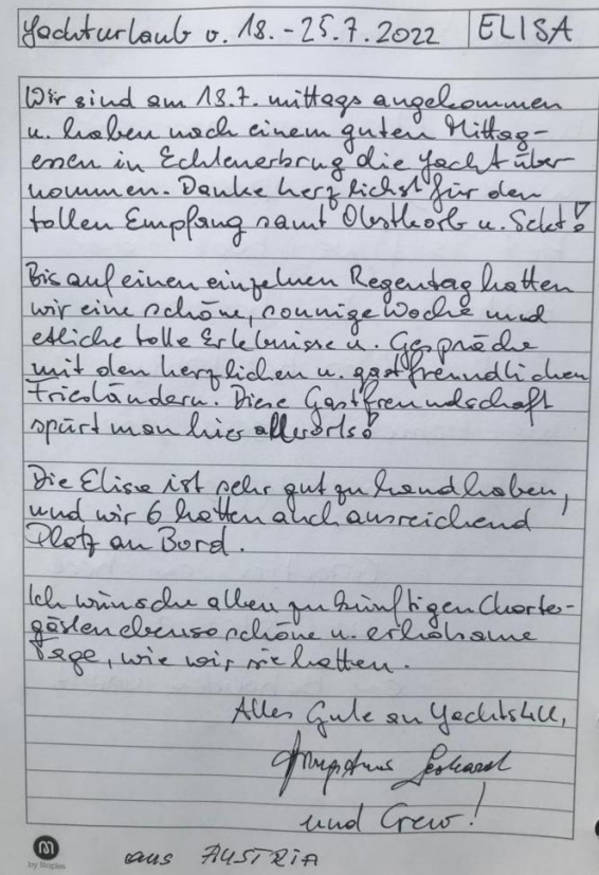 Yachturlaub v. 18.-25.7.2022 ELISA
Wir sind am 18.7. mittags angekommen
u. haben nach einem guten Mittag-
essen in Echtenerbrug die Yacht über
nommen. Danke herzlichst für den
tollen Empfang samt Obstkorb u. Sekt!
Bis auf einen einzelnen Regentag hatten
wir eine schöne, sonnige Woche und
etliche tolle Erlebnisse u. Gespräche
mit den herzlichen u. gastfreundlichen
Friesländern. Diese Gastfreundschaft
spürt man hier allerorts!
Die Elisa ist sehr gut zu handhaben,
und wir 6 hatten auch ausreichend
Platz an Bord.
Ich wünsche allen zukünftigen Charter-
gästen ebenso schöne u. erholsame
Tage, wie wir sie hatten.
Alles Gute an Yachts4all,
und Crew!
aus AUSTRIA
m
by Staples